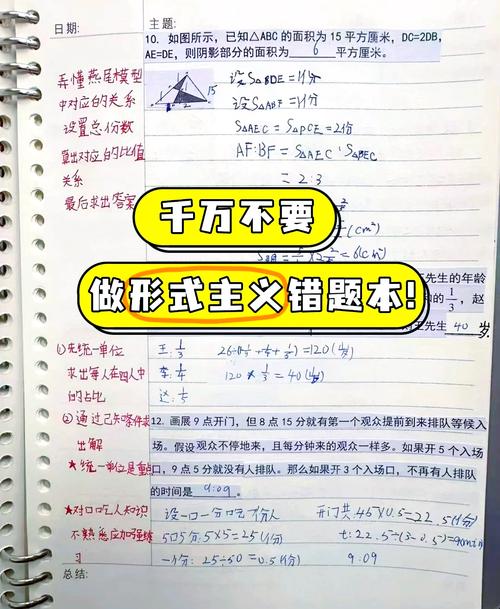 日期:
主题:
10. 如图所示，已知△ABC 的面积为 15 平方厘米，DC=2DB，
AE=DE，则阴影部分的面积为 6 平方厘米。
弄懂燕尾模型
中对应的关系
设置总份数
算出对应的比值
关系
最后求出答案
15
设S△BDE = 1份
设S△ABF = 1份
S△AEC = S△DCE = 2份
AF:BF = S△AEC : S△BEC
= 2:3
千万不要
做形式主义错题本!
(cm²)
= 6(cm²)
先生的年龄
和的1/3，赵
先生 40 岁。
①先统一单位
求出每人在四人中
的占比
②通过已知条件求
出解
★统一单位是重点
★对口吃人知识
不熟悉应加强练
习
王: 1/3
李: 1/4
赵: 1/5
=120(岁)
120 × 1/3 = 40(岁)
12. 画展 9 点开门，但 8 点 15 分就有第一个观众提前到来排队等候入
场。假设观众不停地来，且每分钟来的观众一样多。如果开 5 个入场
口，9 点 5 分就没有人排队。那么如果开 3 个入场口，不再有人排队
的时间是 9:09 。
设一口一分吃1份人
5口5分: 5×5 = 25(份)
一个分: 25÷50 = 0.5(份)
开门共: 45×0.5 = 22.5(份)
t: 22.5÷(3-0.5) = 9(min)
9:09
总结: